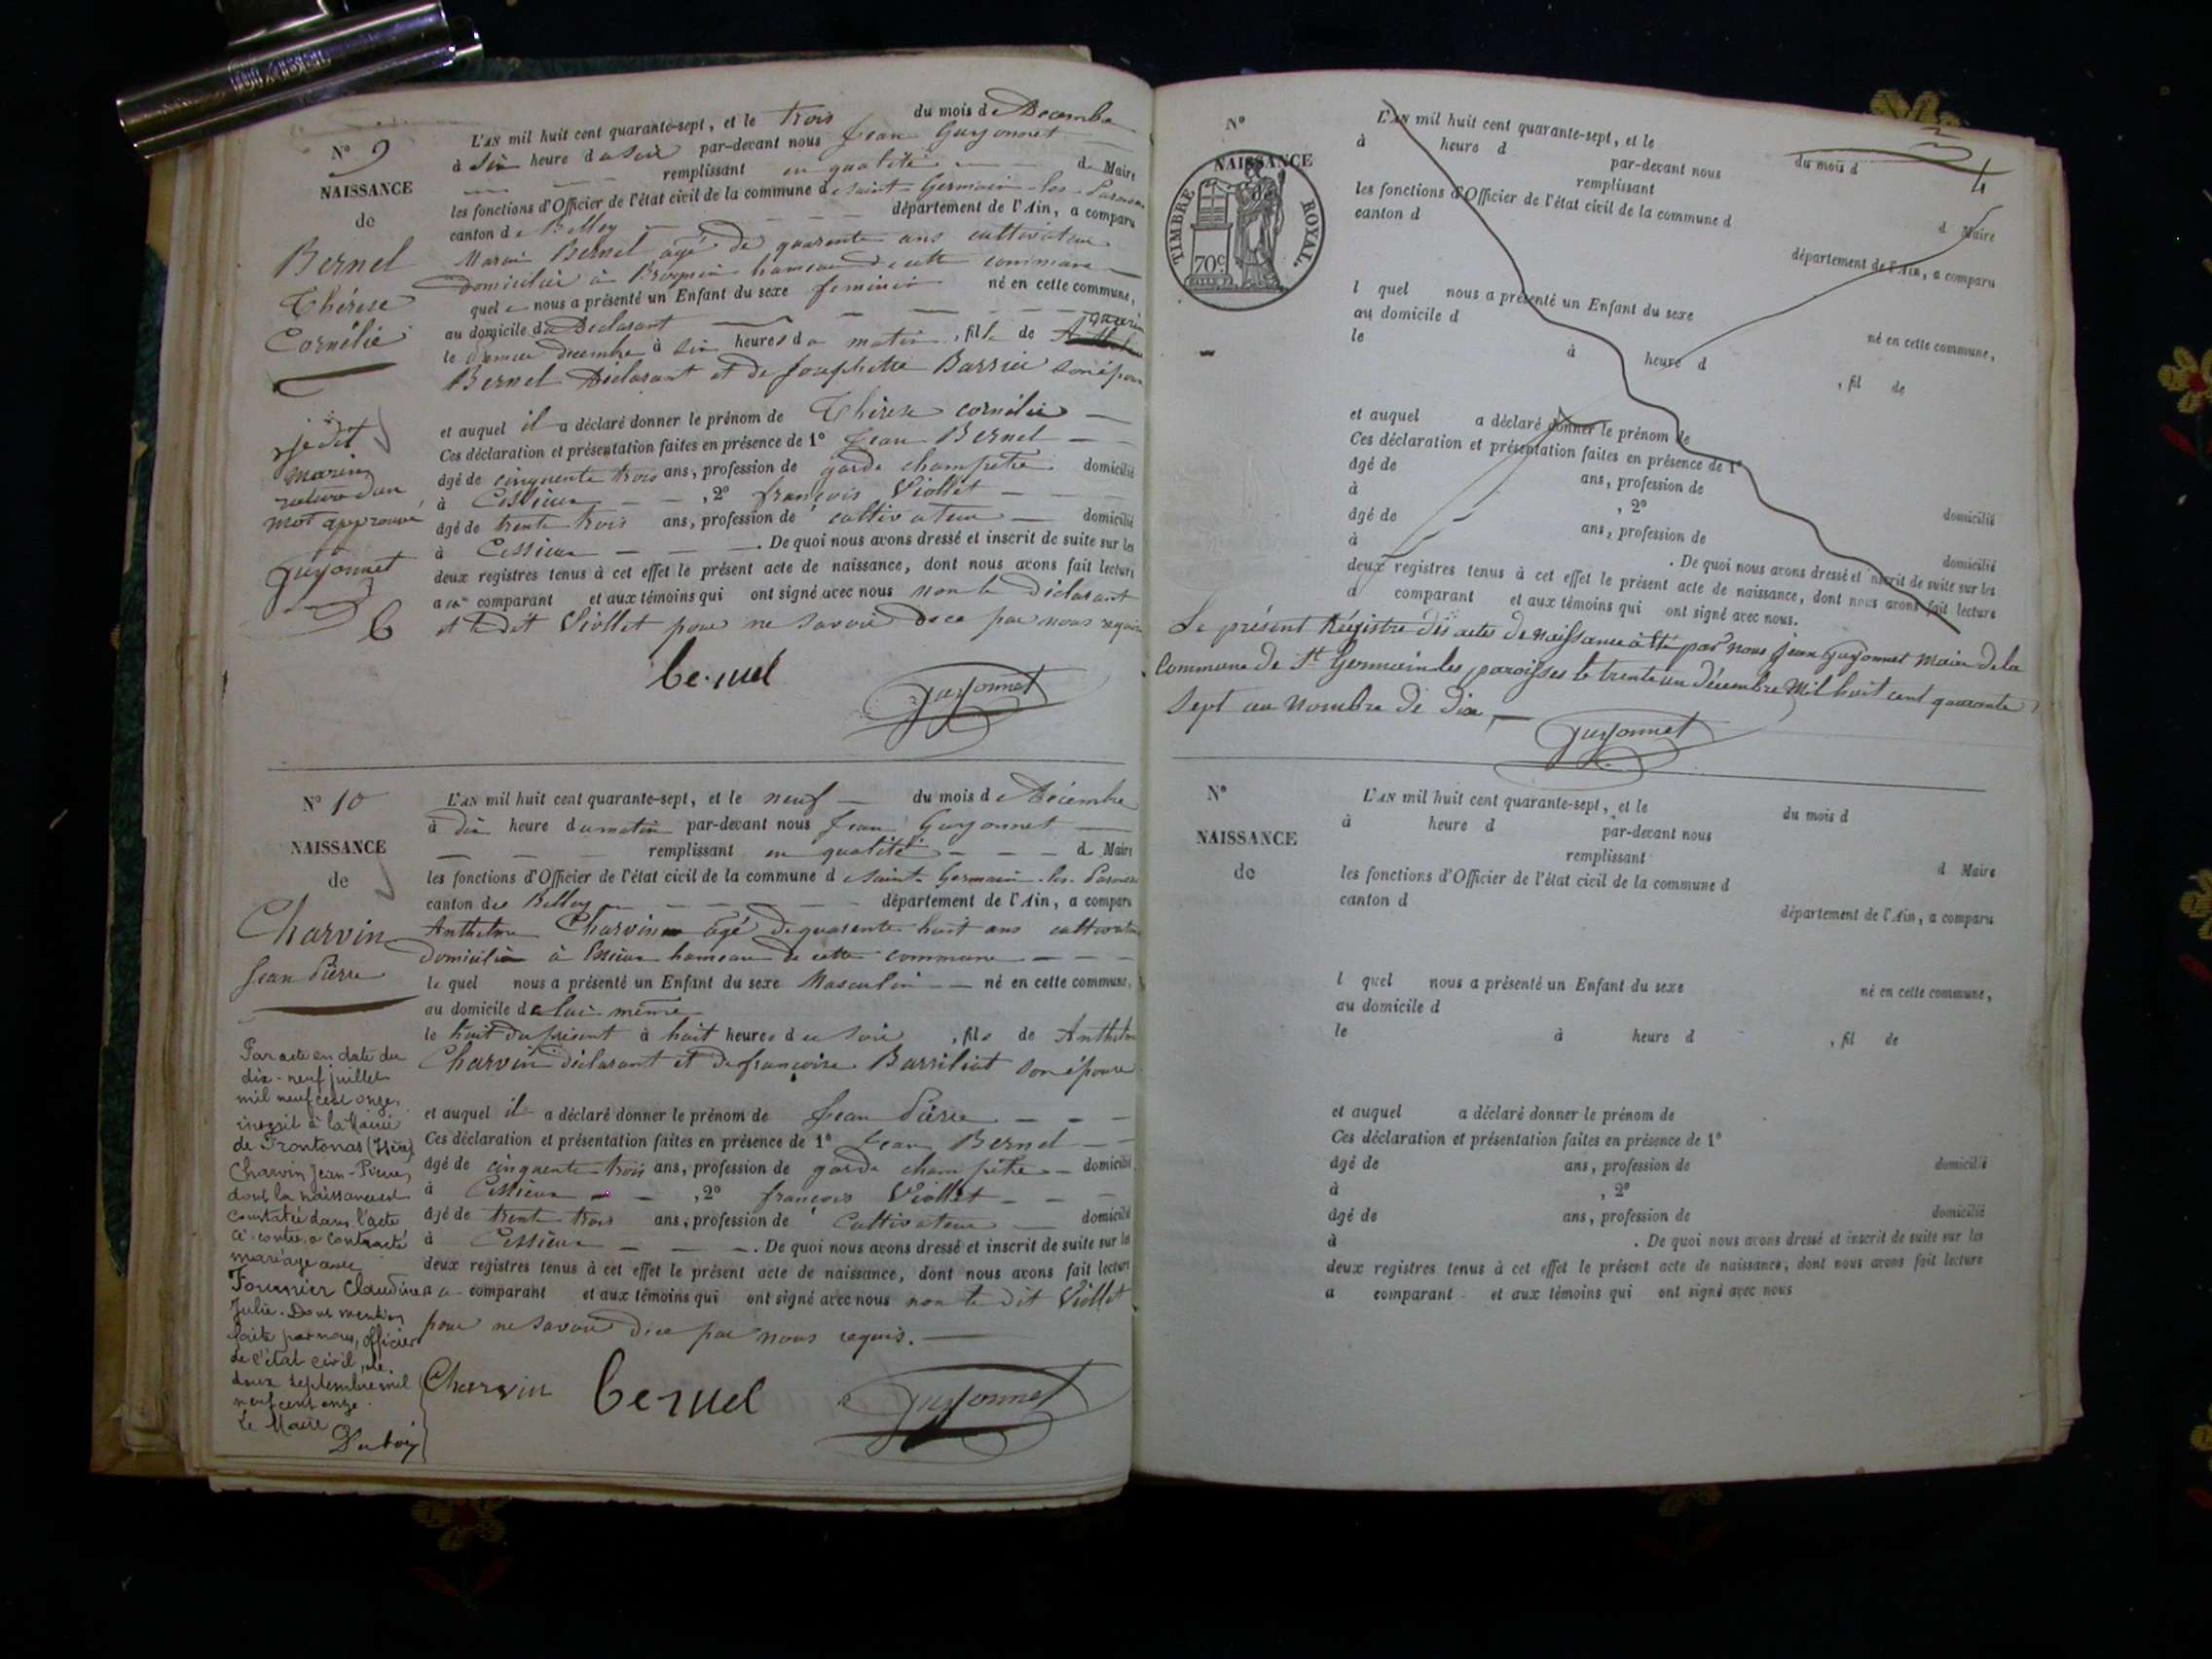 N° 9
NAISSANCE
de
Bernel
Thérèse
Cornélie
L'AN mil huit cent quarante-sept, et le trois du mois de Décembre
à six heure du soir par-devant nous Jean Guyonnet
remplissant en qualité de Maire
les fonctions d'Officier de l'état civil de la commune de Saint-Germain-les-Paroisses
canton de Belley département de l'Ain, a comparu
Marin Bernel agé de quarente ans cultivateur
domicilié à hameau de cette commune
quel nous a présenté un Enfant du sexe feminin né en cette commune,
au domicile du Déclarant
le decembre à six heures du matin, fille de Marin
Bernel Déclarant et de Josephette Barrier son épouse
et auquel il a déclaré donner le prénom de Thérèse cornélie
Ces déclaration et présentation faites en présence de 1° Jean Bernel
âgé de cinquente trois ans, profession de garde champetre domicilié
à Cessieux, 2° françois Viollet
âgé de trente trois ans, profession de cultivateur domicilié
à Cessieux. De quoi nous avons dressé et inscrit de suite sur les
deux registres tenus à cet effet le présent acte de naissance, dont nous avons fait lecture
au comparant et aux témoins qui ont signé avec nous non le déclarant
et le dit Viollet pour ne savoir de ce par nous requis
je dit
marin
rature d'un
mot approuvé
Guyonnet
B
bernel
Guyonnet
N° 10
NAISSANCE
de
Charvin
Jean Pierre
L'AN mil huit cent quarante-sept, et le neuf du mois de Décembre
à dix heure du matin par-devant nous Jean Guyonnet
remplissant en qualité de Maire
les fonctions d'Officier de l'état civil de la commune de Saint-Germain-les-Paroisses
canton de Belley département de l'Ain, a comparu
Anthelme Charvin agé de quarente huit ans cultivateur
domicilié à Essieux hameau de cette commune
le quel nous a présenté un Enfant du sexe Masculin né en cette commune,
au domicile de lui même
le huit du présent à huit heures du soir, fils de Anthelme
Charvin déclarant et de françoise Barriliat son épouse
et auquel il a déclaré donner le prénom de Jean Pierre
Ces déclaration et présentation faites en présence de 1° Jean Bernel
âgé de cinquente trois ans, profession de garde champêtre domicilié
à Cessieux, 2° françois Viollet
âgé de trente trois ans, profession de Cultivateur domicilié
à Cessieux. De quoi nous avons dressé et inscrit de suite sur les
deux registres tenus à cet effet le présent acte de naissance, dont nous avons fait lecture
au comparant et aux témoins qui ont signé avec nous non le dit Viollet
pour ne savoir de ce par nous requis.
Par acte en date du
dix-neuf juillet
mil neuf cent onze,
inscrit à la Mairie
de Frontonas (Isère)
Charvin Jean-Pierre,
dont la naissance est
constatée dans l'acte
ci-contre, a contracté
mariage avec
Fournier Claudine
Julie. Dont mention
faite par nous, officier
de l'état civil, le
deux septembre mil
neuf cent onze.
Le Maire
Dubois
Charvin bernel Guyonnet
4
N°
NAISSANCE
de
TIMBRE ROYAL.
70c
L'AN mil huit cent quarante-sept, et le du mois d
à heure d par-devant nous
remplissant d Maire
les fonctions d'Officier de l'état civil de la commune d
canton d département de l'Ain, a comparu
l quel nous a présenté un Enfant du sexe né en cette commune,
au domicile d
le à heure d , fil de
et auquel a déclaré donner le prénom de
Ces déclaration et présentation faites en présence de 1°
âgé de ans, profession de domicilié
à , 2°
âgé de ans, profession de domicilié
à . De quoi nous avons dressé et inscrit de suite sur les
deux registres tenus à cet effet le présent acte de naissance, dont nous avons fait lecture
a comparant et aux témoins qui ont signé avec nous.
Le présent Régistre des actes de naissance à été par nous Jean Guyonnet Maire de la
Commune de St Germain les paroisses le trente un décembre Mil huit cent quarante
Sept au nombre de dix
Guyonnet
N°
NAISSANCE
de
L'AN mil huit cent quarante-sept, et le du mois d
à heure d par-devant nous
remplissant d Maire
les fonctions d'Officier de l'état civil de la commune d
canton d département de l'Ain, a comparu
l quel nous a présenté un Enfant du sexe né en cette commune,
au domicile d
le à heure d , fil de
et auquel a déclaré donner le prénom de
Ces déclaration et présentation faites en présence de 1°
âgé de ans, profession de domicilié
à , 2°
âgé de ans, profession de domicilié
à . De quoi nous avons dressé et inscrit de suite sur les
deux registres tenus à cet effet le présent acte de naissance, dont nous avons fait lecture
a comparant et aux témoins qui ont signé avec nous